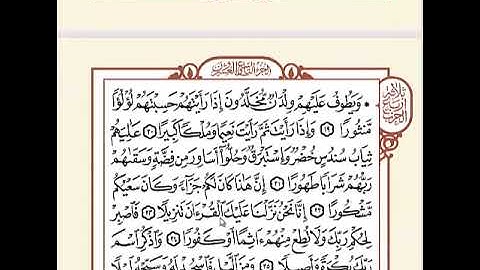 الجزء التاسع والعشرون
ثلاثة أرباع الحزب
۞ وَيَطُوفُ عَلَيْهِمْ وِلْدَٰنٌ مُّخَلَّدُونَ إِذَا رَأَيْتَهُمْ حَسِبْتَهُمْ لُؤْلُؤًا
مَّنثُورًا ١٩ وَإِذَا رَأَيْتَ ثَمَّ رَأَيْتَ نَعِيمًا وَمُلْكًا كَبِيرًا ٢٠ عَٰلِيَهُمْ
ثِيَابُ سُندُسٍ خُضْرٌ وَإِسْتَبْرَقٌ وَحُلُّوٓا۟ أَسَاوِرَ مِن فِضَّةٍ وَسَقَىٰهُمْ
رَبُّهُمْ شَرَابًا طَهُورًا ٢١ إِنَّ هَٰذَا كَانَ لَكُمْ جَزَآءً وَكَانَ سَعْيُكُم
مَّشْكُورًا ٢٢ إِنَّا نَحْنُ نَزَّلْنَا عَلَيْكَ ٱلْقُرْءَانَ تَنزِيلًا ٢٣ فَٱصْبِرْ
لِحُكْمِ رَبِّكَ وَلَا تُطِعْ مِنْهُمْ ءَاثِمًا أَوْ كَفُورًا ٢٤ وَٱذْكُرِ ٱسْمَ
رَبِّكَ بُكْرَةً وَأَصِيلًا ٢٥ وَمِنَ ٱلَّيْلِ فَٱسْجُدْ لَهُۥ وَسَبِّحْهُ لَيْلًا